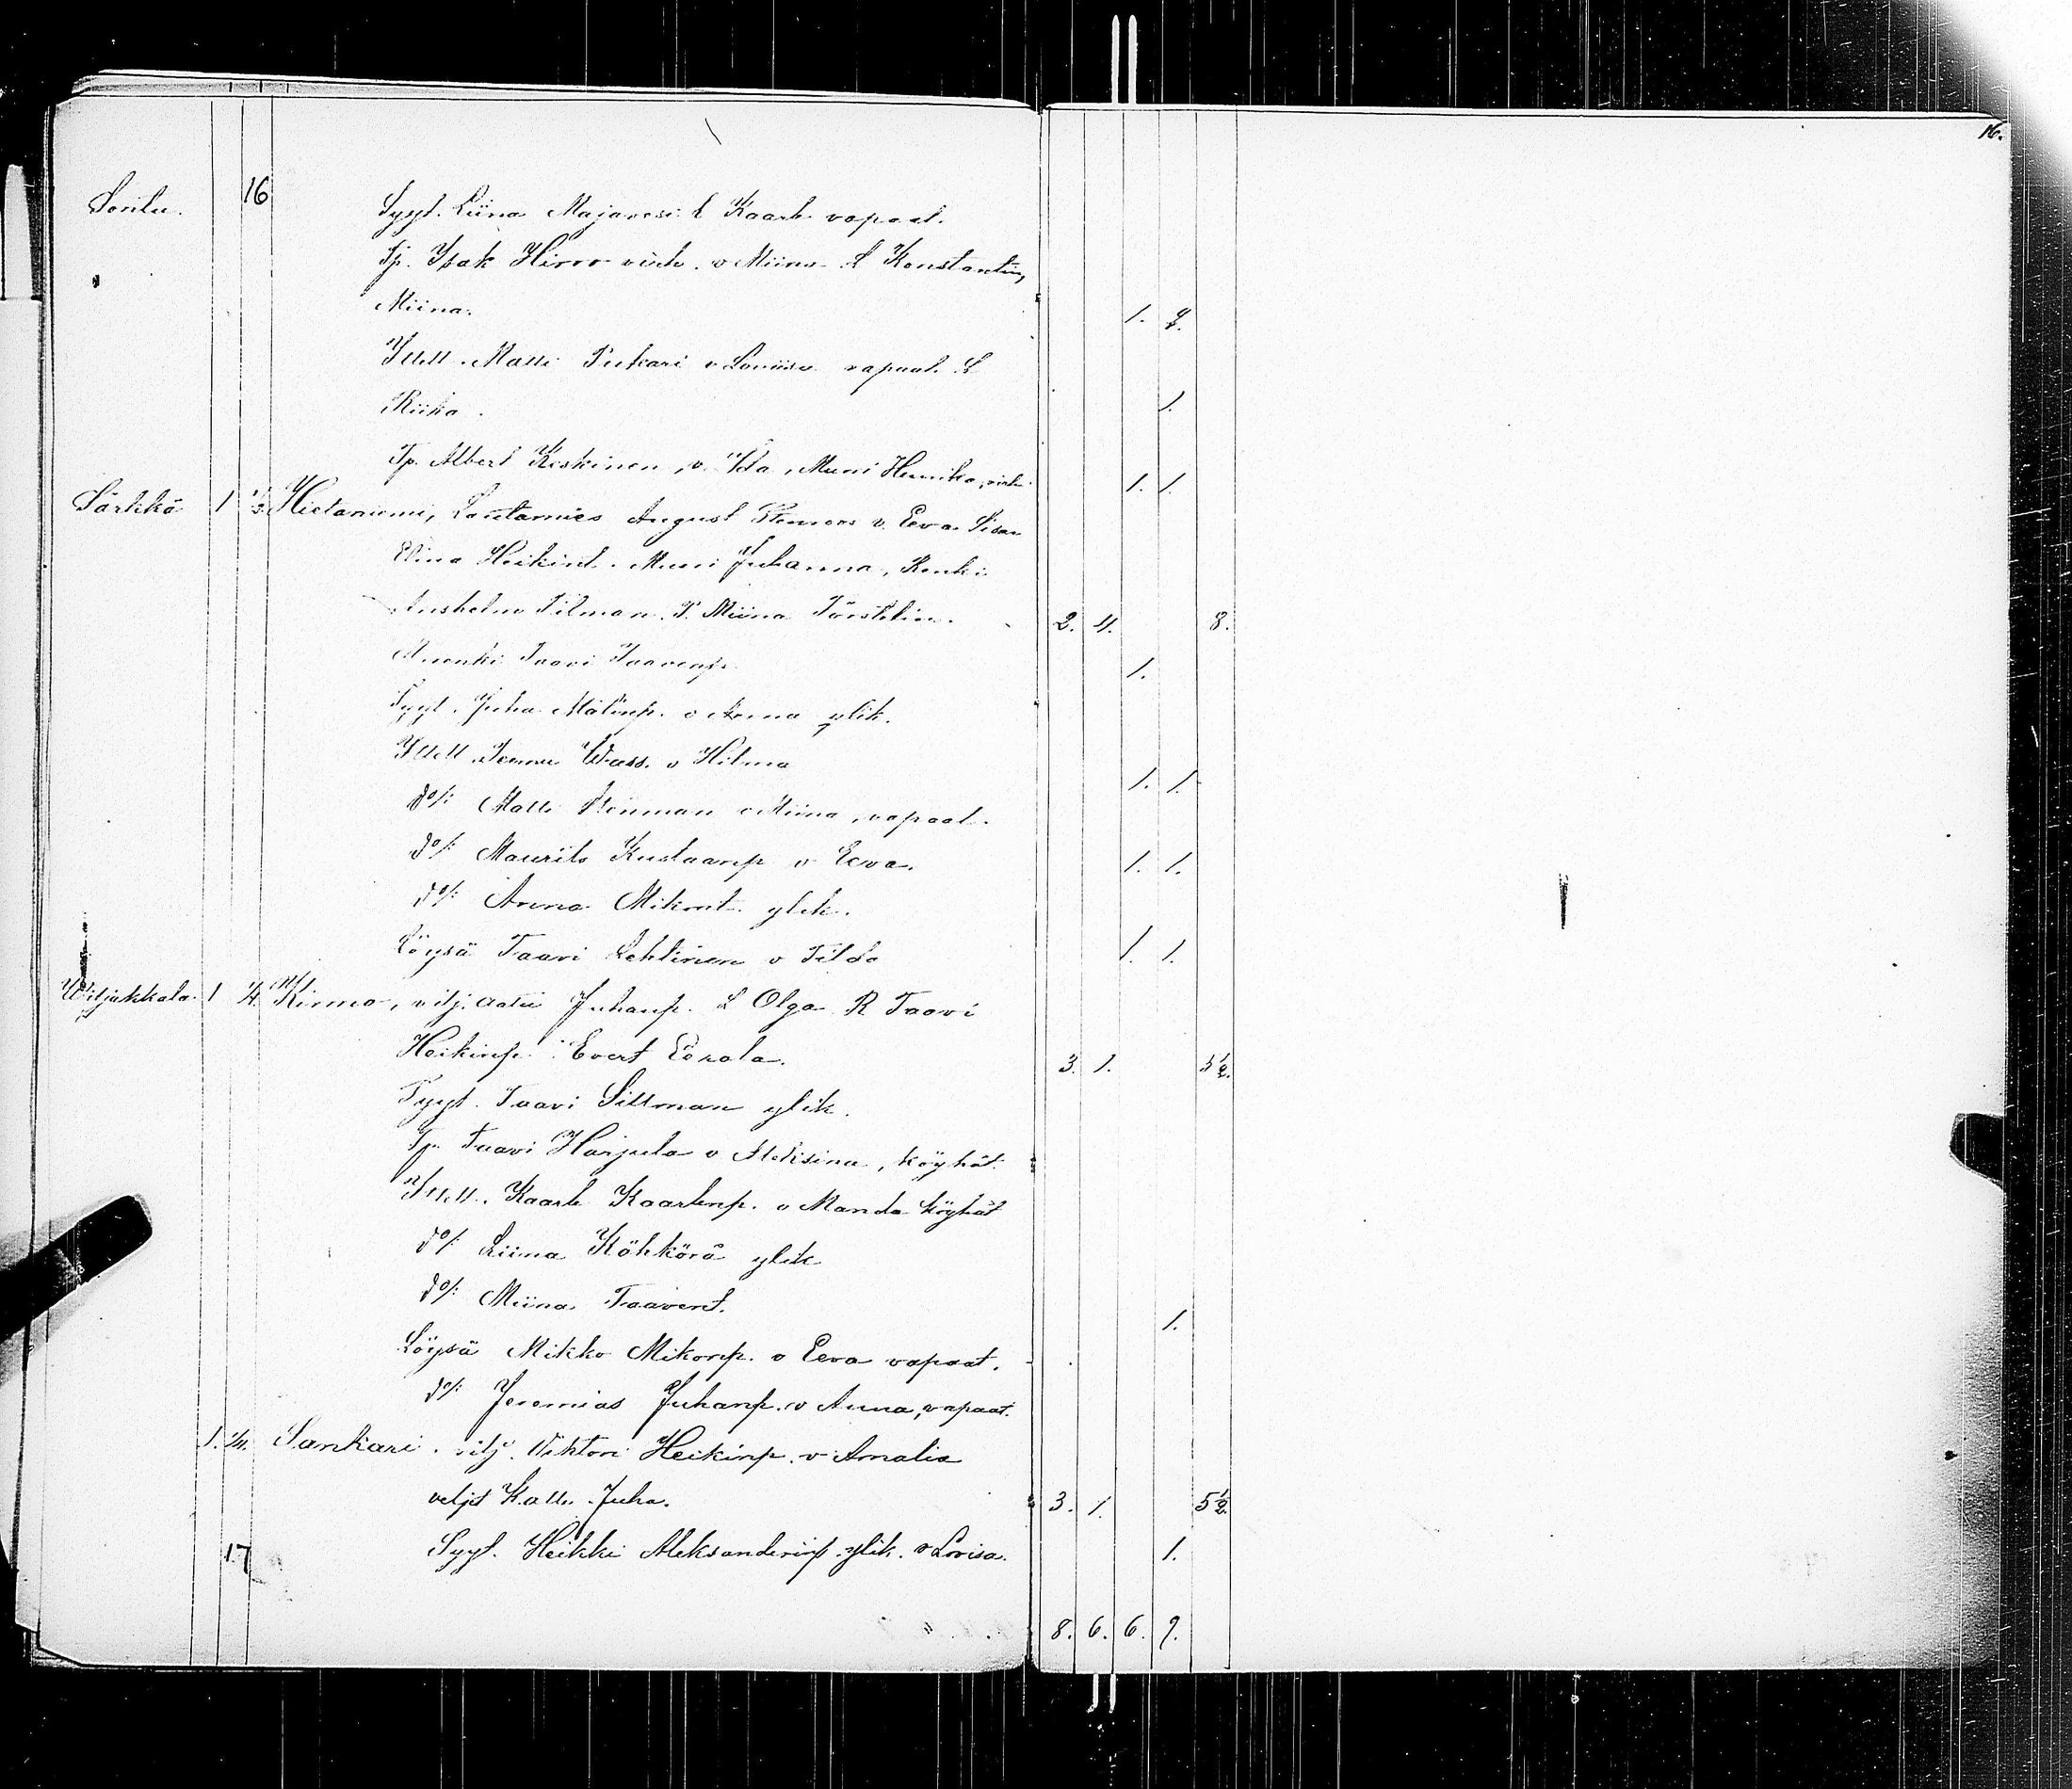 16.
Sorila. 16 Syyt. Liina Majavesi L Kaarle vapaat.
Tp. Isak Hirvo v Miina L Konstantin,
Miina. 1. 2.
Ittell. Matti Pukari v Loviisa vapaat. L
Riika. 1.
Tp. Albert Keskinen, v. Ida, Muori Henrika, 1. 1.
Särkkä 1 Hietaniemi, Lautamies August v. Eeva Sisar
Elina Heikint. Muori Juhanna, Renki
Anshelm Silman. P. Miina 2. 4. 8.
Taavi Taavinp. 1.
Syyt. Juha Matinp. v Anna ylik.
Ittell. Wass. v Hilma 1. 1.
do/: Matti v Miina, vapaat.
do/: Maurits Kustaanp v Eeva. 1. 1.
do/: Anna Mikont. ylik.
Löysä Taavi Lehtinen v Tilda 1. 1.
Wiljakkala. 1 1/4. Kirmo, vilj. Juhanp. L Olga R Taavi
Heikinp. Evert Eerola. 3. 1. 5 1/2.
Syyt. Taavi Sillman ylik.
Tp. Taavi Harjula v Aleksina, köyhät.
Ittell. Kaarle Kaarlenp. v Manda köyhät
do/: Liina Köhkörä ylik
do/: Miina Taavent. 1.
Löysä Mikko Mikonp. v Eeva vapaat.
do/: Jeremias Juhanp. v Anna, vapaat.
1. 1/4. Sankari. vilj. Viktori Heikinp. v Amalia
veljet Kalle Juha. 3. 1. 5 1/2.
17 Syyt. Heikki Aleksanderinp. ylik. v Lovisa. 1.
8. 6. 6. 9.